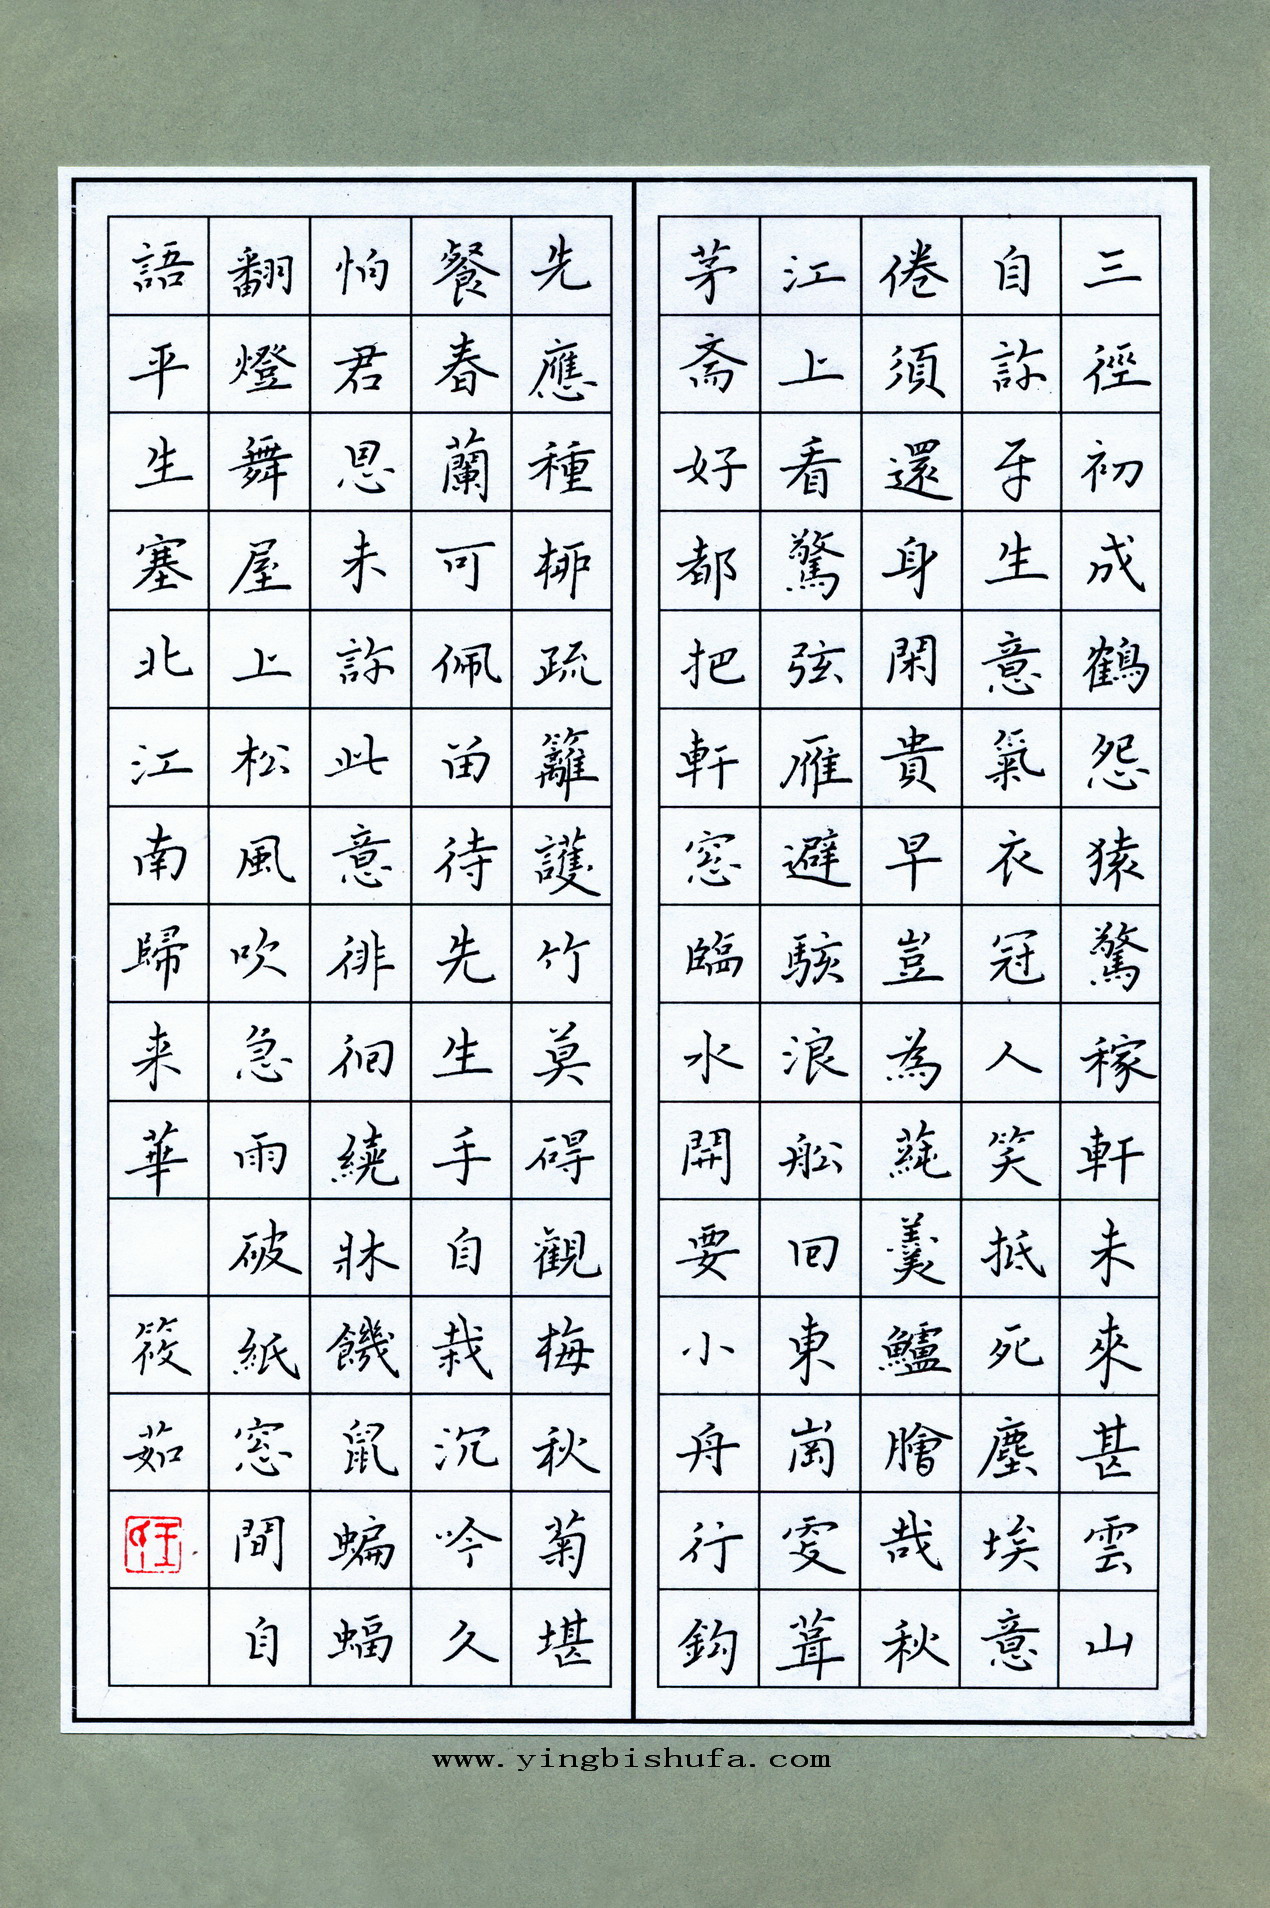 三徑初成鶴怨猿驚稼軒未來甚雲山
自許平生意氣衣冠人笑抵死塵埃意
倦須還身閑貴早豈為蒓羹鱸膾哉秋
江上看驚弦雁避駭浪舩回東崗更葺
茅斋好都把軒窓臨水開要小舟行釣
先應種柳疏籬護竹莫碍觀梅秋菊堪
餐春蘭可佩留待先生手自栽沉吟久
怕君恩未許此意徘徊繞牀饑鼠蝙蝠
翻燈舞屋上松風吹急雨破紙窓間自
語平生塞北江南歸来華 筱茹
任
www.yingbishufa.com